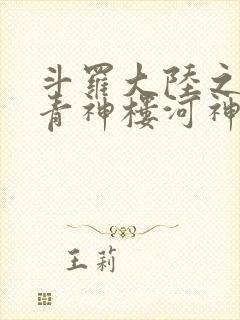 斗羅大陸之
青神樓河神
王莉